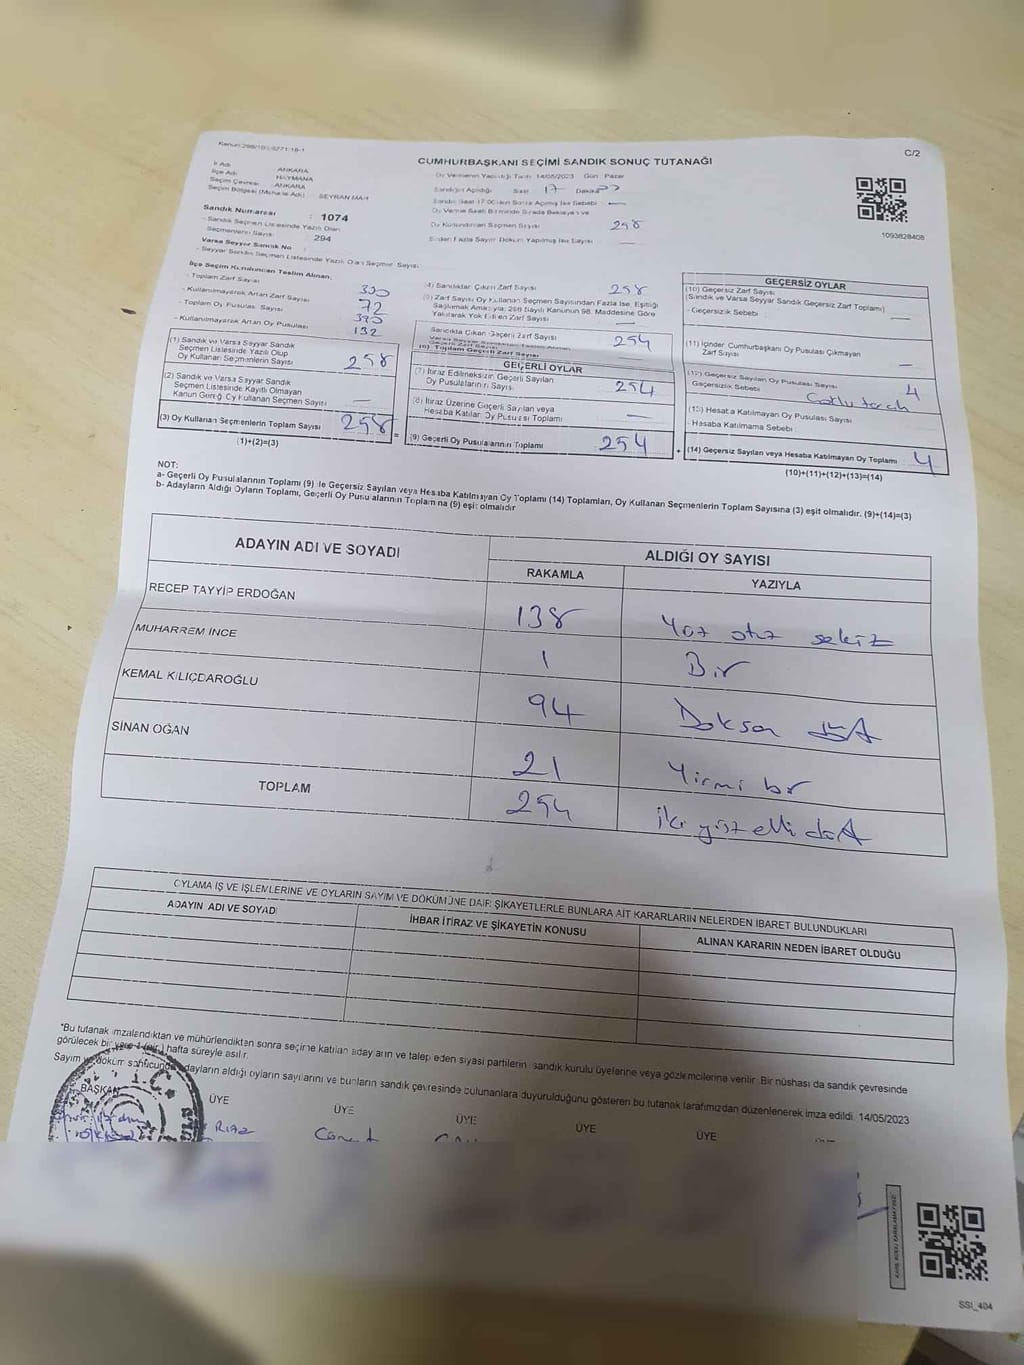 C/2
CUMHURBAŞKANI SEÇİMİ SANDIK SONUÇ TUTANAĞI
İl Adı : ANKARA
İlçe Adı : HAYMANA
Seçim Çevresi : ANKARA
Seçim Bölgesi (Mahalle Adı) : SEYRAN MAH
Oy Vermenin Yapıldığı Tarih 14/05/2023 Gün : Pazar
Sandığın Açıldığı Saat 17 Dakika
Sandık Saat 17:00'den Sonra Açılmış İse Sebebi : —
Oy Kullandırılan Seçmen Sayısı 258
Birden Fazla Sayım Döküm Yapılmış İse Sayısı —
1093828408
Sandık Numarası : 1074
- Sandık Seçmen Listesinde Yazılı Olan
Seçmenlerin Sayısı : 294
Varsa Seyyar Sandık No
- Seyyar Sandık Seçmen Listesinde Yazılı Olan Seçmen Sayısı
İlçe Seçim Kurulundan Teslim Alınan;
- Toplam Zarf Sayısı
- Kullanılmayarak Artan Zarf Sayısı 72
- Toplam Oy Pusulası Sayısı
- Kullanılmayarak Artan Oy Pusulası 132
(1) Sandık ve Varsa Seyyar Sandık
Seçmen Listesinde Yazılı Olup
Oy Kullanan Seçmenlerin Sayısı 258
(2) Sandık ve Varsa Seyyar Sandık
Seçmen Listesinde Kayıtlı Olmayan
Kanun Gereği Oy Kullanan Seçmen Sayısı —
(3) Oy Kullanan Seçmenlerin Toplam Sayısı 258
(1)+(2)=(3)
(4) Sandıktan Çıkan Zarf Sayısı 258
(5) Zarf Sayısı Oy Kullanan Seçmen Sayısından Fazla İse, Eşitliği
Sağlamak Amacıyla; 298 Sayılı Kanunun 98. Maddesine Göre
Yakılarak Yok Edilen Zarf Sayısı —
Sandıkta Çıkan Geçerli Zarf Sayısı 254
(6) Toplam Geçerli Zarf Sayısı
GEÇERLİ OYLAR
(7) İtiraz Edilmeksizin Geçerli Sayılan
Oy Pusulalarının Sayısı 254
(8) İtiraz Üzerine Geçerli Sayılan veya
Hesaba Katılan Oy Pusulası Toplamı —
(9) Geçerli Oy Pusulalarının Toplamı 254
GEÇERSİZ OYLAR
(10) Geçersiz Zarf Sayısı
(Sandık ve Varsa Seyyar Sandık Geçersiz Zarf Toplamı)
- Geçersizlik Sebebi : —
(11) İçinden Cumhurbaşkanı Oy Pusulası Çıkmayan
Zarf Sayısı —
(12) Geçersiz Sayılan Oy Pusulası Sayısı 4
Geçersizlik Sebebi
(13) Hesaba Katılmayan Oy Pusulası Sayısı
- Hesaba Katılmama Sebebi :
(14) Geçersiz Sayılan veya Hesaba Katılmayan Oy Toplamı 4
(10)+(11)+(12)+(13)=(14)
NOT:
a- Geçerli Oy Pusulalarının Toplamı (9) ile Geçersiz Sayılan veya Hesaba Katılmayan Oy Toplamı (14) Toplamları, Oy Kullanan Seçmenlerin Toplam Sayısına (3) eşit olmalıdır. (9)+(14)=(3)
b- Adayların Aldığı Oyların Toplamı, Geçerli Oy Pusulalarının Toplamına (9) eşit olmalıdır
ADAYIN ADI VE SOYADI ALDIĞI OY SAYISI
RAKAMLA YAZIYLA
RECEP TAYYİP ERDOĞAN 138 Yüz otuz sekiz
MUHARREM İNCE 1 Bir
KEMAL KILIÇDAROĞLU 94 Doksan dört
SİNAN OĞAN 21 Yirmi bir
TOPLAM 254 iki yüz elli dört
OYLAMA İŞ VE İŞLEMLERİNE VE OYLARIN SAYIM VE DÖKÜMÜNE DAİR ŞİKAYETLERLE BUNLARA AİT KARARLARIN NELERDEN İBARET BULUNDUKLARI
ADAYIN ADI VE SOYADI İHBAR İTİRAZ VE ŞİKAYETİN KONUSU ALINAN KARARIN NEDEN İBARET OLDUĞU
*Bu tutanak imzalandıktan ve mühürlendikten sonra seçime katılan adayların ve talep eden siyasi partilerin sandık kurulu üyelerine veya gözlemcilerine verilir. Bir nüshası da sandık çevresinde
görülecek bir yere 1 (bir) hafta süreyle asılır.
Sayım ve döküm sonucunda adayların aldığı oyların sayılarını ve bunların sandık çevresinde bulunanlara duyurulduğunu gösteren bu tutanak tarafımızdan düzenlenerek imza edildi. 14/05/2023
BAŞKAN ÜYE ÜYE ÜYE ÜYE ÜYE
SSI_404